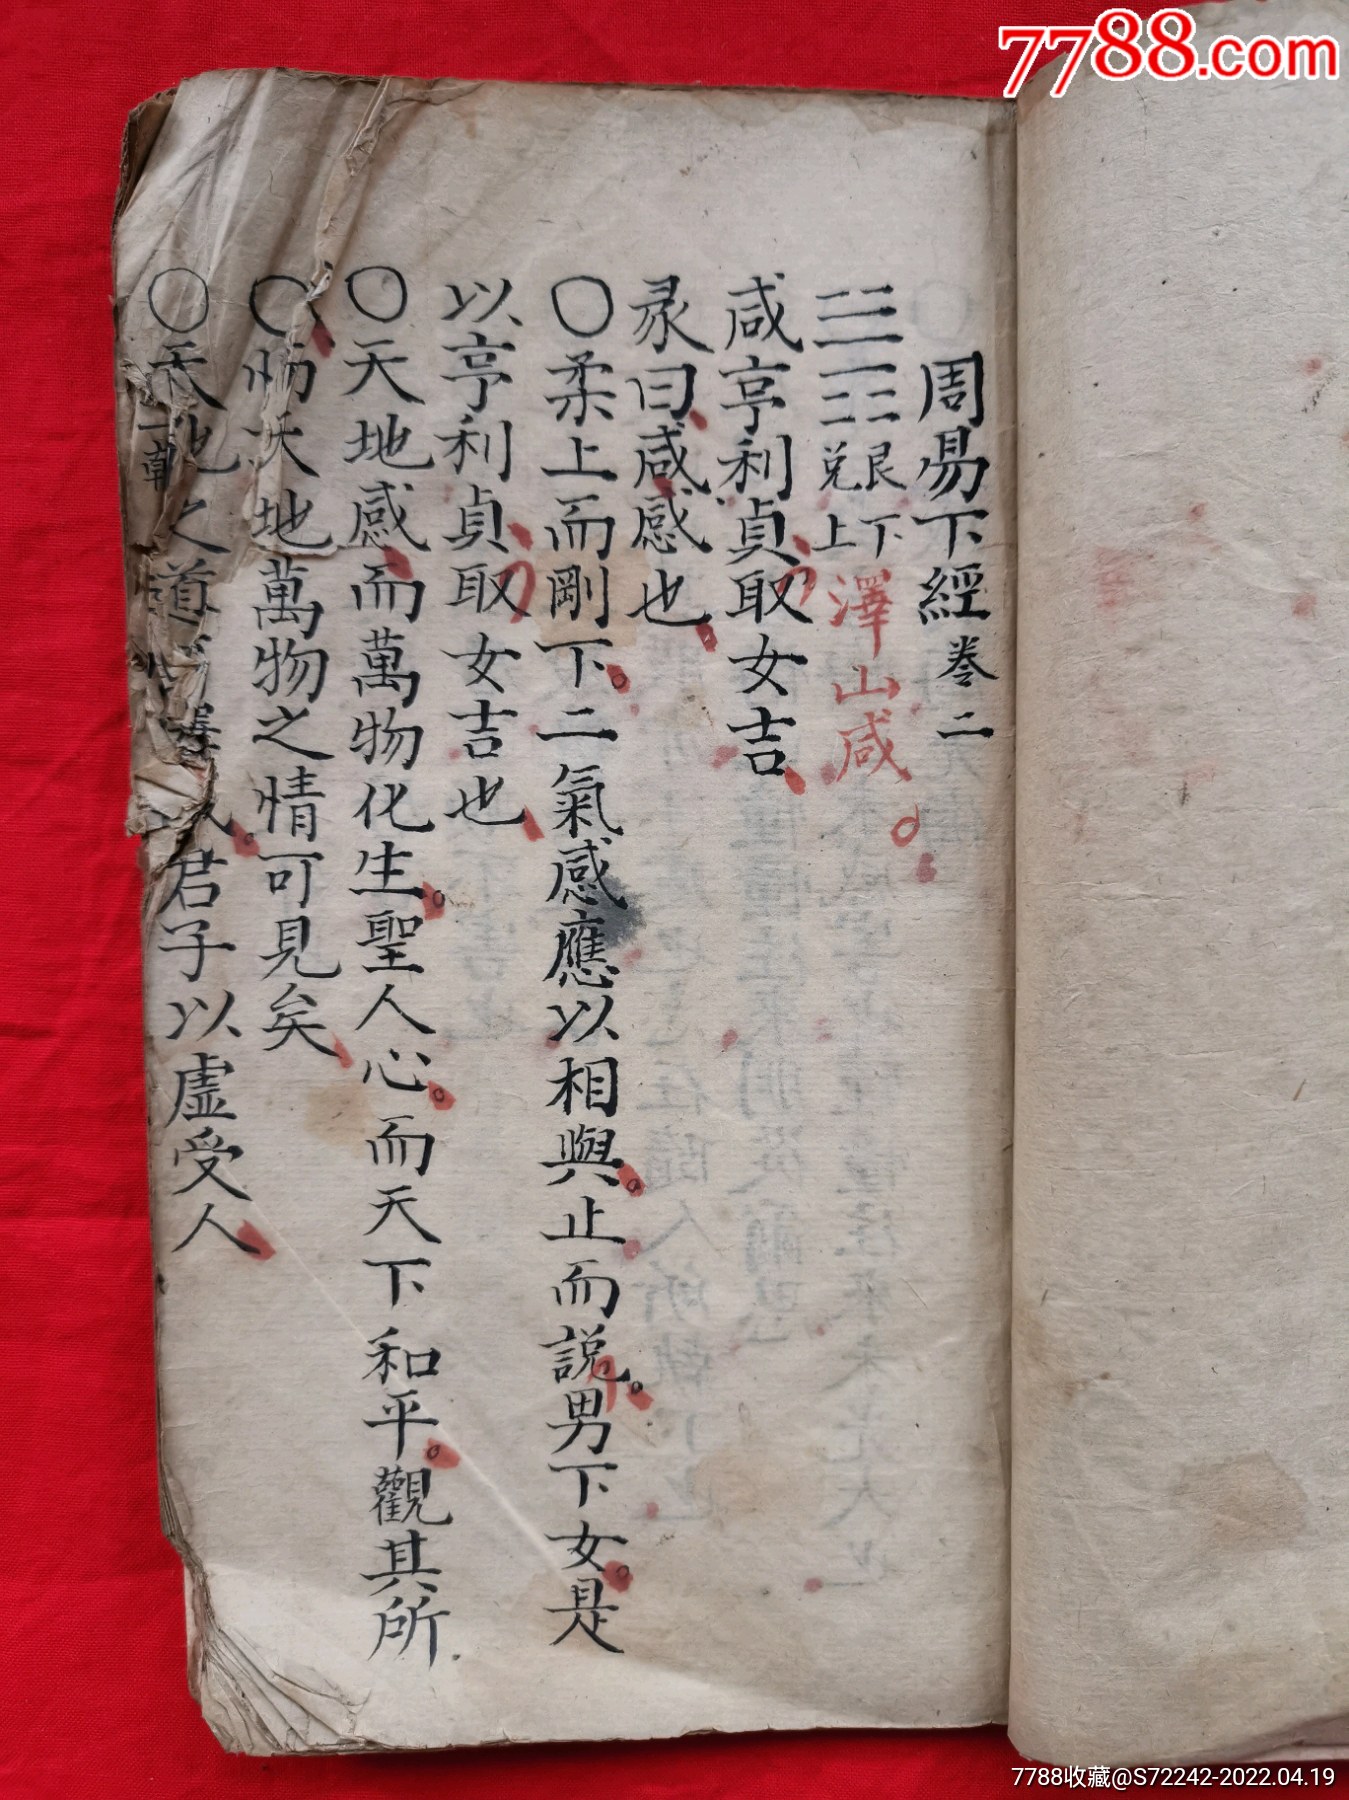 7788.com
周易下經卷二
艮下兌上澤山咸
咸亨利貞取女吉
彖曰咸感也
〇柔上而剛下。二氣感應以相與。止而説。男下女。是
以亨利貞取女吉也
〇天地感而萬物化生。聖人心。而天下和平。觀其所
〇天地萬物之情可見矣
〇天地之道君子以虛受人
7788收藏@S72242-2022.04.19